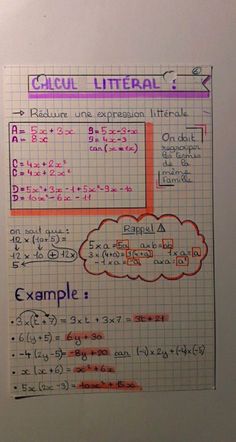 CALCUL LITTÉRAL :
→ Réduire une expression littérale
A = 5x + 3x
A = 8x
B = 5x - 3 - x
B = 4x - 3
car (x = 1x)
C = 4x + 2x²
C = 4x + 2x²
D = 5x² + 3x - 1 + 5x² - 9x - 10
D = 10x² - 6x - 11
On doit
regrouper
les termes
de la
même
famille
on sait que :
12 x (10+5) =
12 x 10 + 12 x
5
Rappel ⚠
5 x a = 5a a x b = ab
3 x (4+a) = 3(4+a) 1 x a = a
-1 x a = -a a x a = a²
Example :
• 3 x (t + 7) = 3 x t + 3 x 7 = 3t + 21
• 6 (y + 5) = 6y + 30
• -4 (2y - 5) = -8y + 20 car (-4) x 2y + (-4) x (-5)
• x (x + 6) = x² + 6x
• 5x (2x - 3) = 10x² + 15x